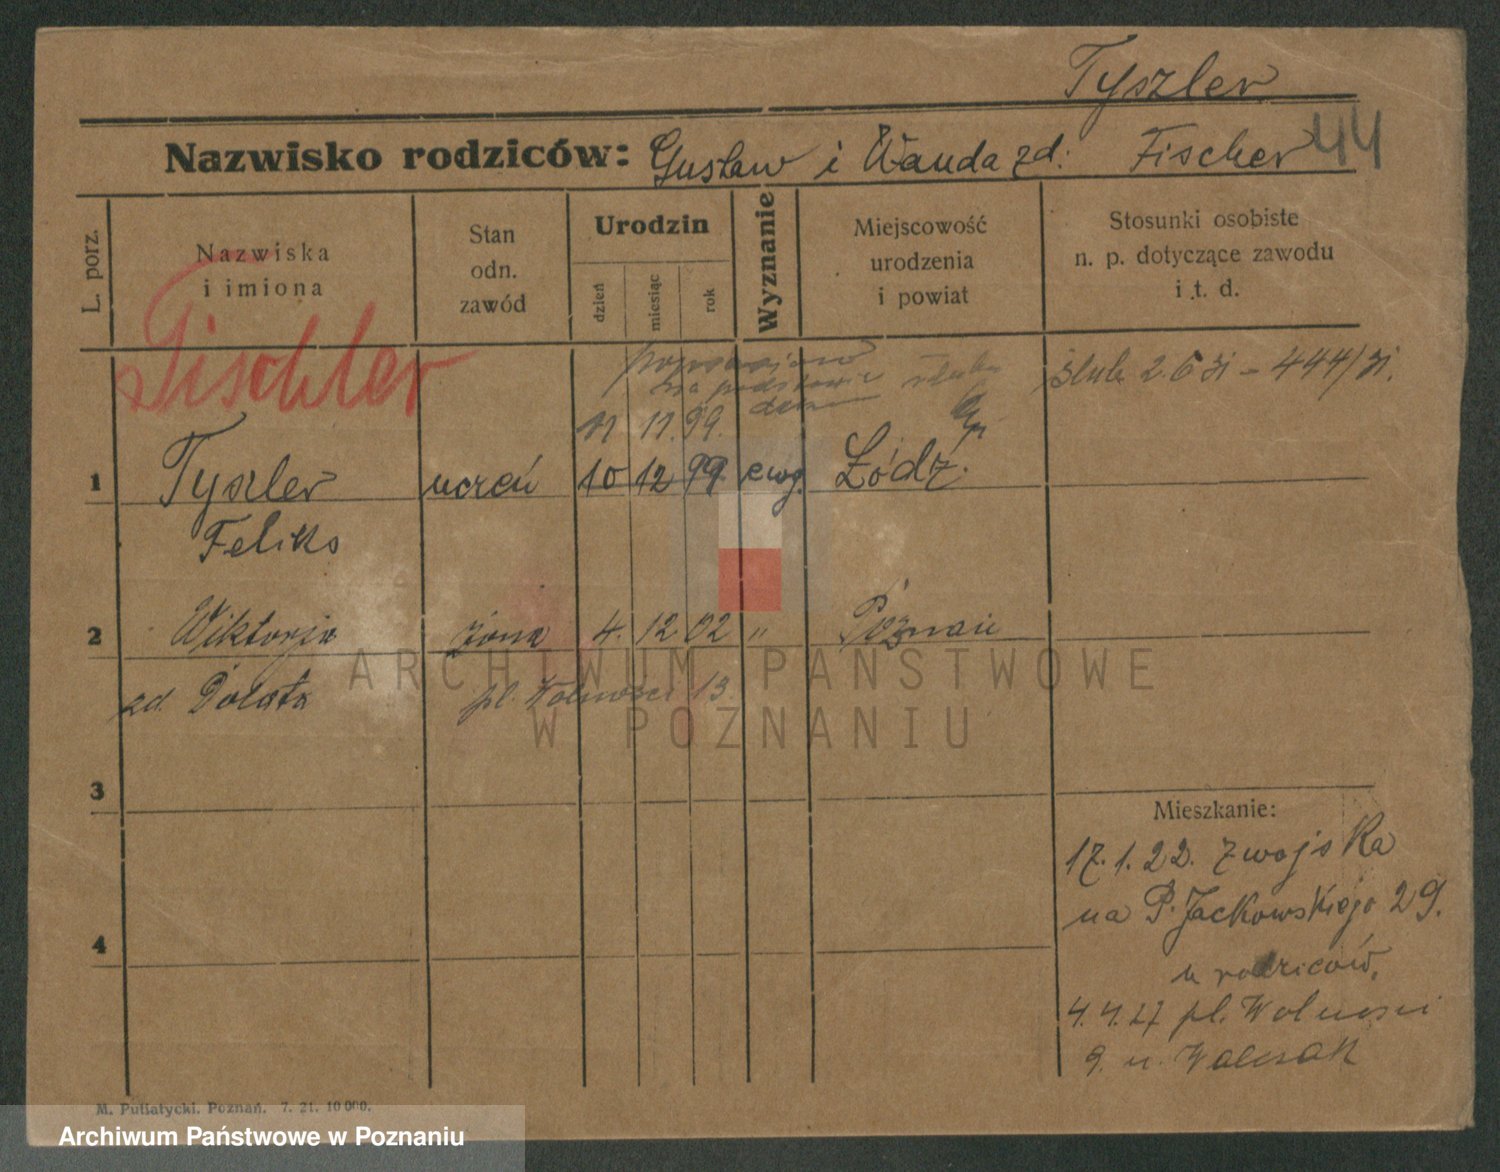 Tyszler
Nazwisko rodziców: Gustaw i Wanda zd. Fischer 44
L. porz.
Nazwiska
i imiona
Stan
odn.
zawód
Urodzin
dzień
miesiąc
rok
Wyznanie
Miejscowość
urodzenia
i powiat
Stosunki osobiste
n. p. dotyczące zawodu
i t. d.
Tischler
poprawiono
na podstawie ślubu
ślub 2.6 31 - 444/31.
11 11. 99.
1 Tyszler uczeń 10 12 99 ewg. Łódź.
Feliks
2 Wiktorja żona 4. 12 02 " Poznań
zd. Polata pl. Wolności 13.
3
4
Mieszkanie:
17.1.22. z wojska
na P. Jackowskiego 29.
u rodziców,
4.4.27 pl. Wolności
9. u. Walczak
M. Putiatycki, Poznań. 7. 21. 10 000.
ARCHIWUM PAŃSTWOWE
W POZNANIU
Archiwum Państwowe w Poznaniu